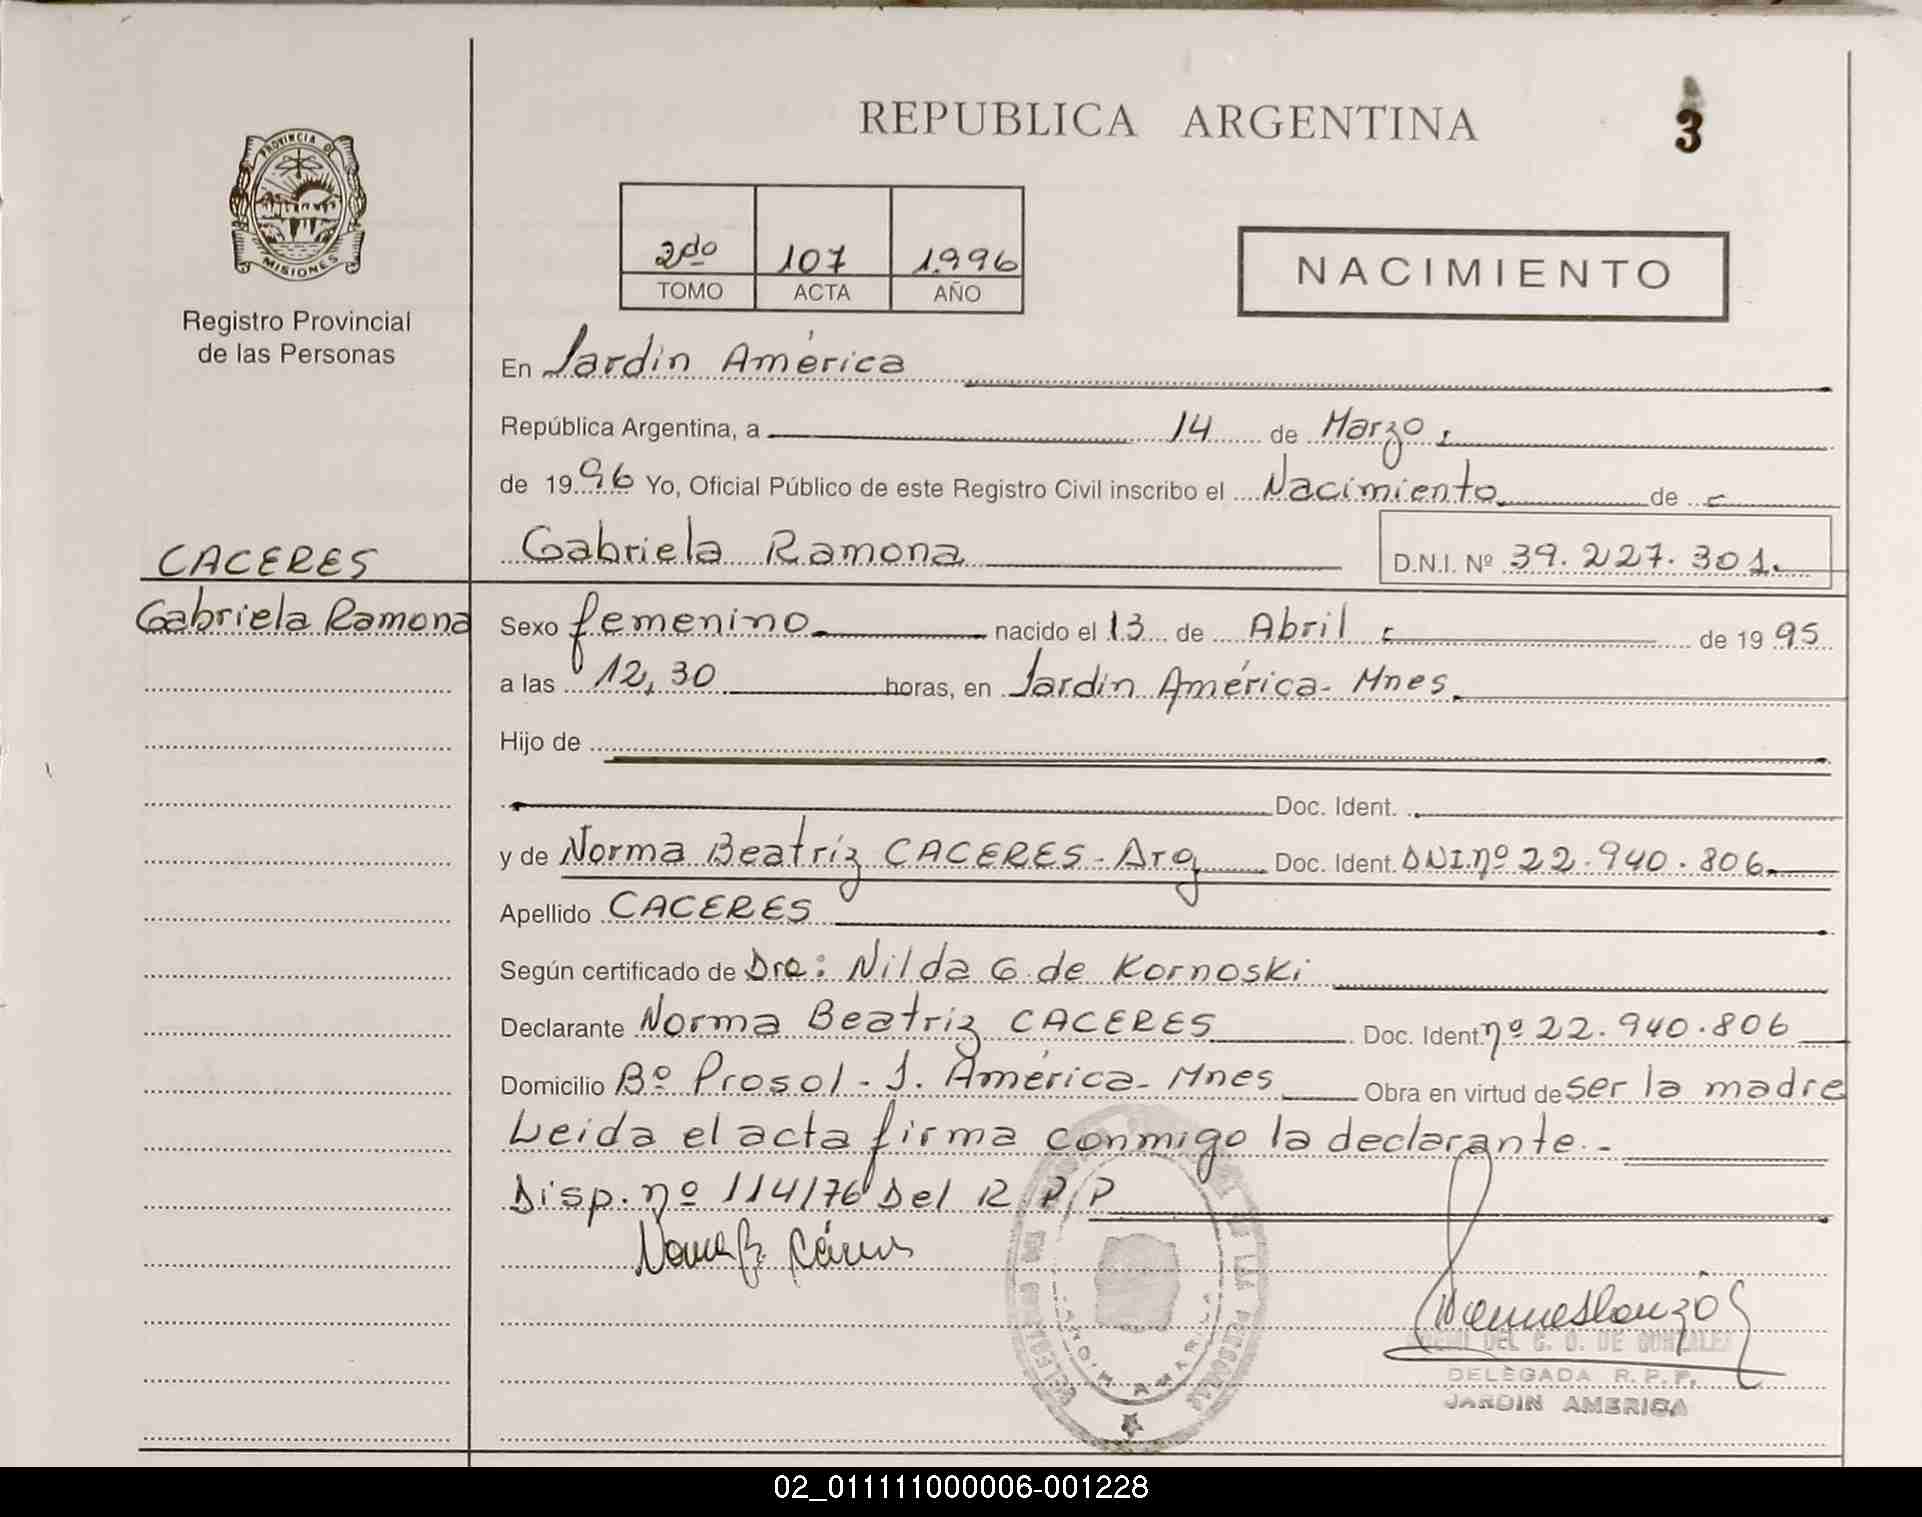 PROVINCIA DE
MISIONES
Registro Provincial
de las Personas
CACERES
Gabriela Ramona
REPUBLICA ARGENTINA
3
2do 107 1996
TOMO ACTA AÑO
NACIMIENTO
En Jardin América
República Argentina, a 14 de Marzo
de 1996 Yo, Oficial Público de este Registro Civil inscribo el Nacimiento de
Gabriela Ramona D.N.I. Nº 39.227.301.
Sexo femenino nacido el 13 de Abril de 1995
a las 12,30 horas, en Jardin América- Mnes.
Hijo de
Doc. Ident.
y de Norma Beatríz CACERES- Arg Doc. Ident. DNI.nº 22.940.806
Apellido CACERES
Según certificado de Dra: Nilda G. de Kornoski
Declarante Norma Beatriz CACERES Doc. Ident. nº 22.940.806
Domicilio Bº Prosol - J. América- Mnes Obra en virtud de ser la madre
Leida el acta firma conmigo la declarante.-
Disp. nº 114/76 Del R.P.P
Norma B. Cáceres
DEL C. O. DE GONZALEZ
DELEGADA R.P.P.
JARDIN AMERICA
02_011111000006-001228